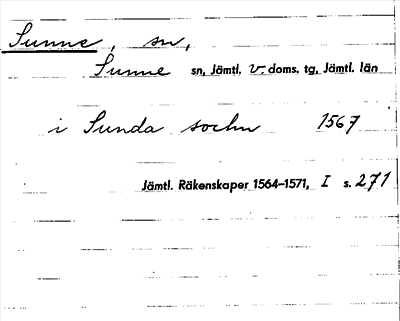 Sunne, sn,
Sunne sn, Jämtl. v. doms. tg, Jämtl. län
i Sunda sochn 1567
Jämtl. Räkenskaper 1564–1571, I s. 271